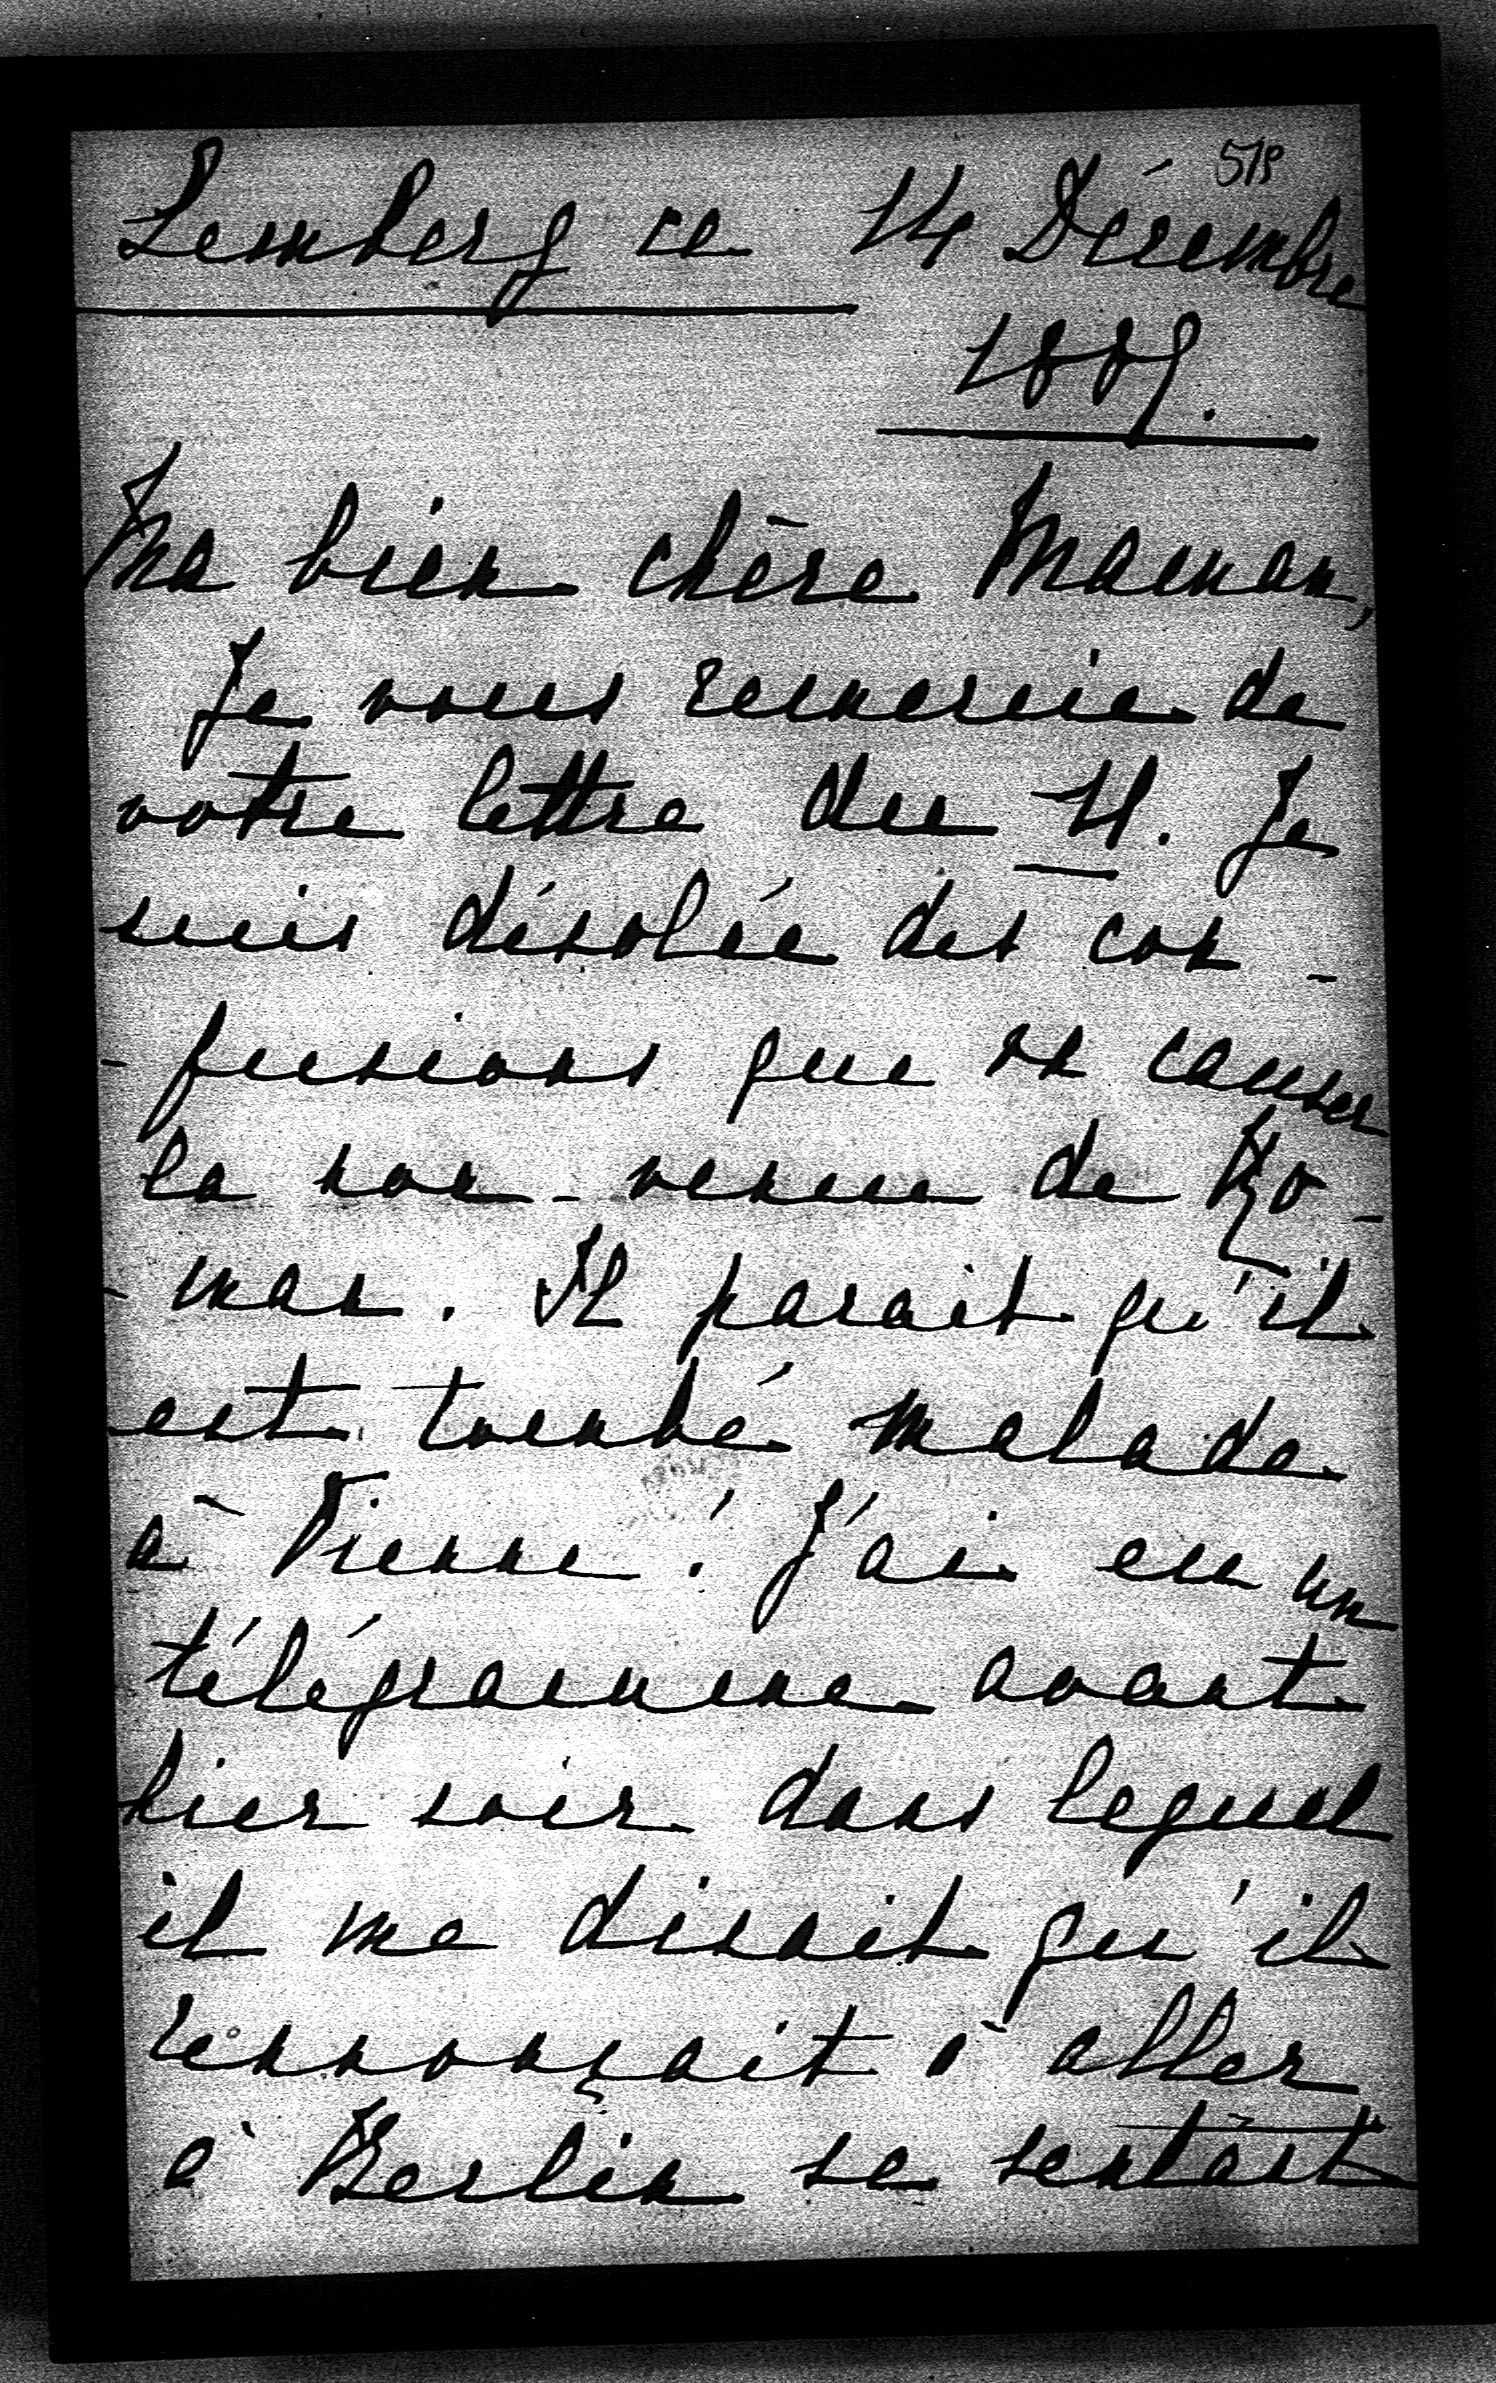 519
Lemberg ce 14 Décembre
1889.
Ma bien chère Maman,
Je vous remercie de
votre lettre du 11. Je
suis désolée des con-
-fusions que va causer
la non-venue de Ro-
-man. Il parait qu'il
est tombé malade
à Vienne! J'ai eu un
télégramme avant
hier soir dans lequel
il me disait qu'il
rennonçait à aller
à Berlin se sentant